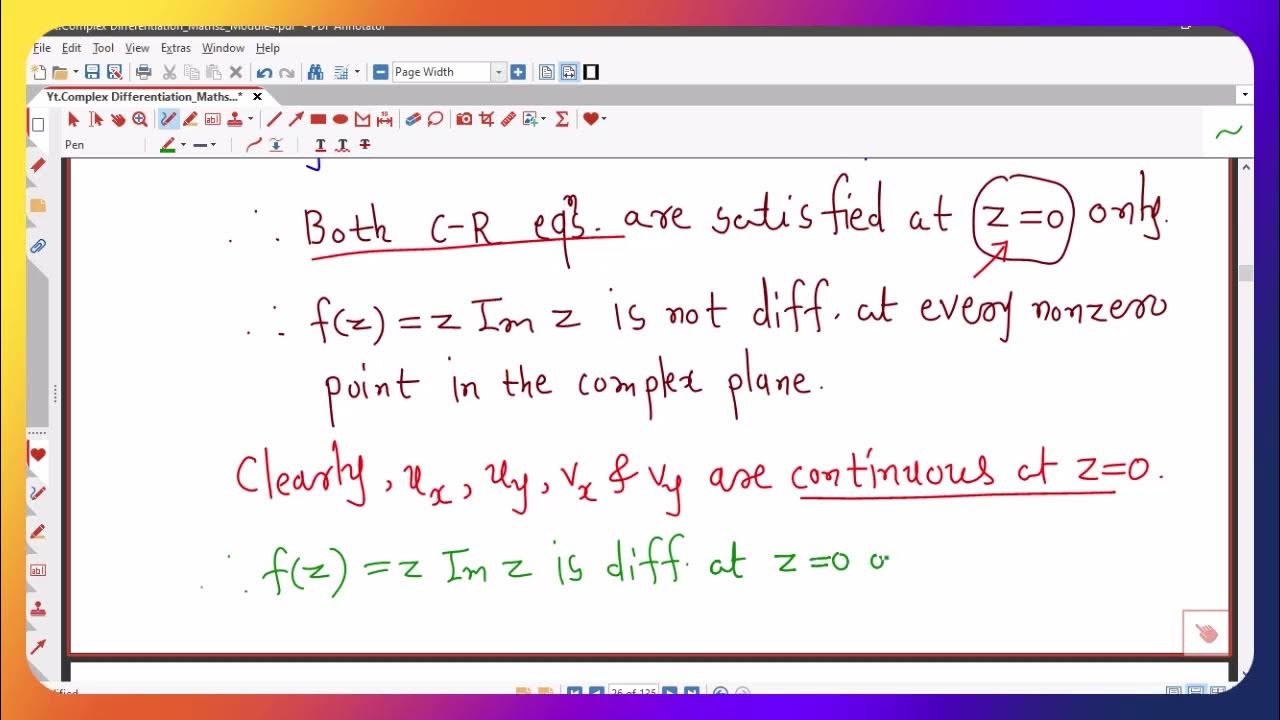 Yt.Complex Differentiation_Maths2_Module4.pdf* - PDF Annotator
File Edit Tool View Extras Window Help
Page Width
Yt.Complex Differentiation_Maths...* ×
Pen
∴ Both C-R eqⁿs. are satisfied at z=0 only.
∴ f(z) = z Im z is not diff. at every nonzero
point in the complex plane.
Clearly, u_x, u_y, v_x & v_y are continuous at z=0.
∴ f(z) = z Im z is diff. at z=0 o
26 of 135